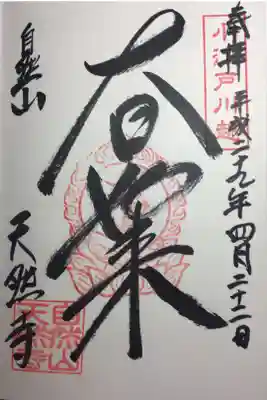 奉拝 平成二十九年四月二十二日
小江戸川越
大日如来
自然山
天然寺
自然山
天然寺